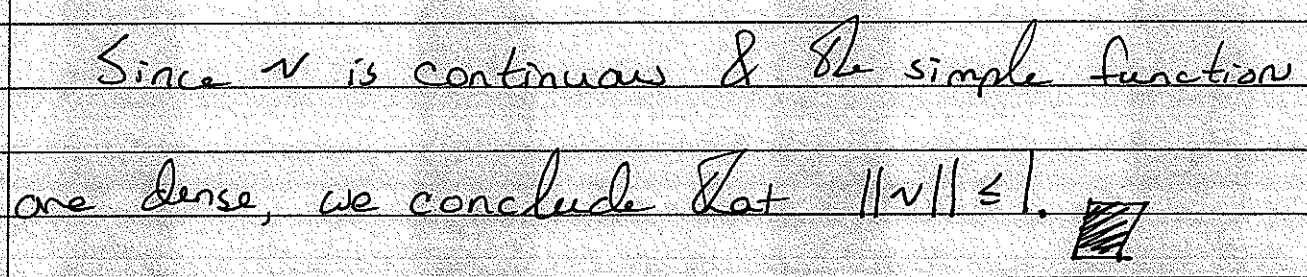 Since N is continuous & the simple function
are dense, we conclude that ||N|| ≤ 1.